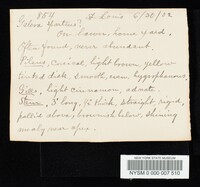 854 St. Louis 6/30/02
Galera
on lawn, home yard,
often found, never abundant.
Pileus, conical, light brown, yellow
tinted disk, smooth, even, hygrophanous.
Gills, light cinnamon, adnate.
Stem, 3" long, thick, straight, rigid,
pallid above, brownish below, shining
NEW YORK STATE MUSEUM
NYSM 0 000 007 510